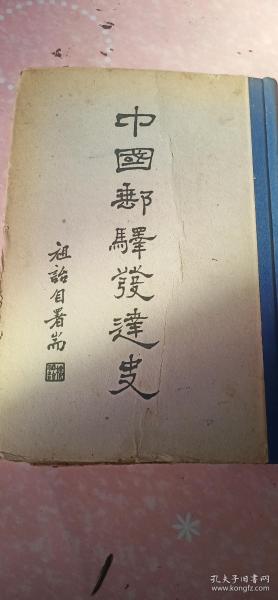 中國郵驛發達史
祖詒自署耑
孔夫子旧书网
www.kongfz.com